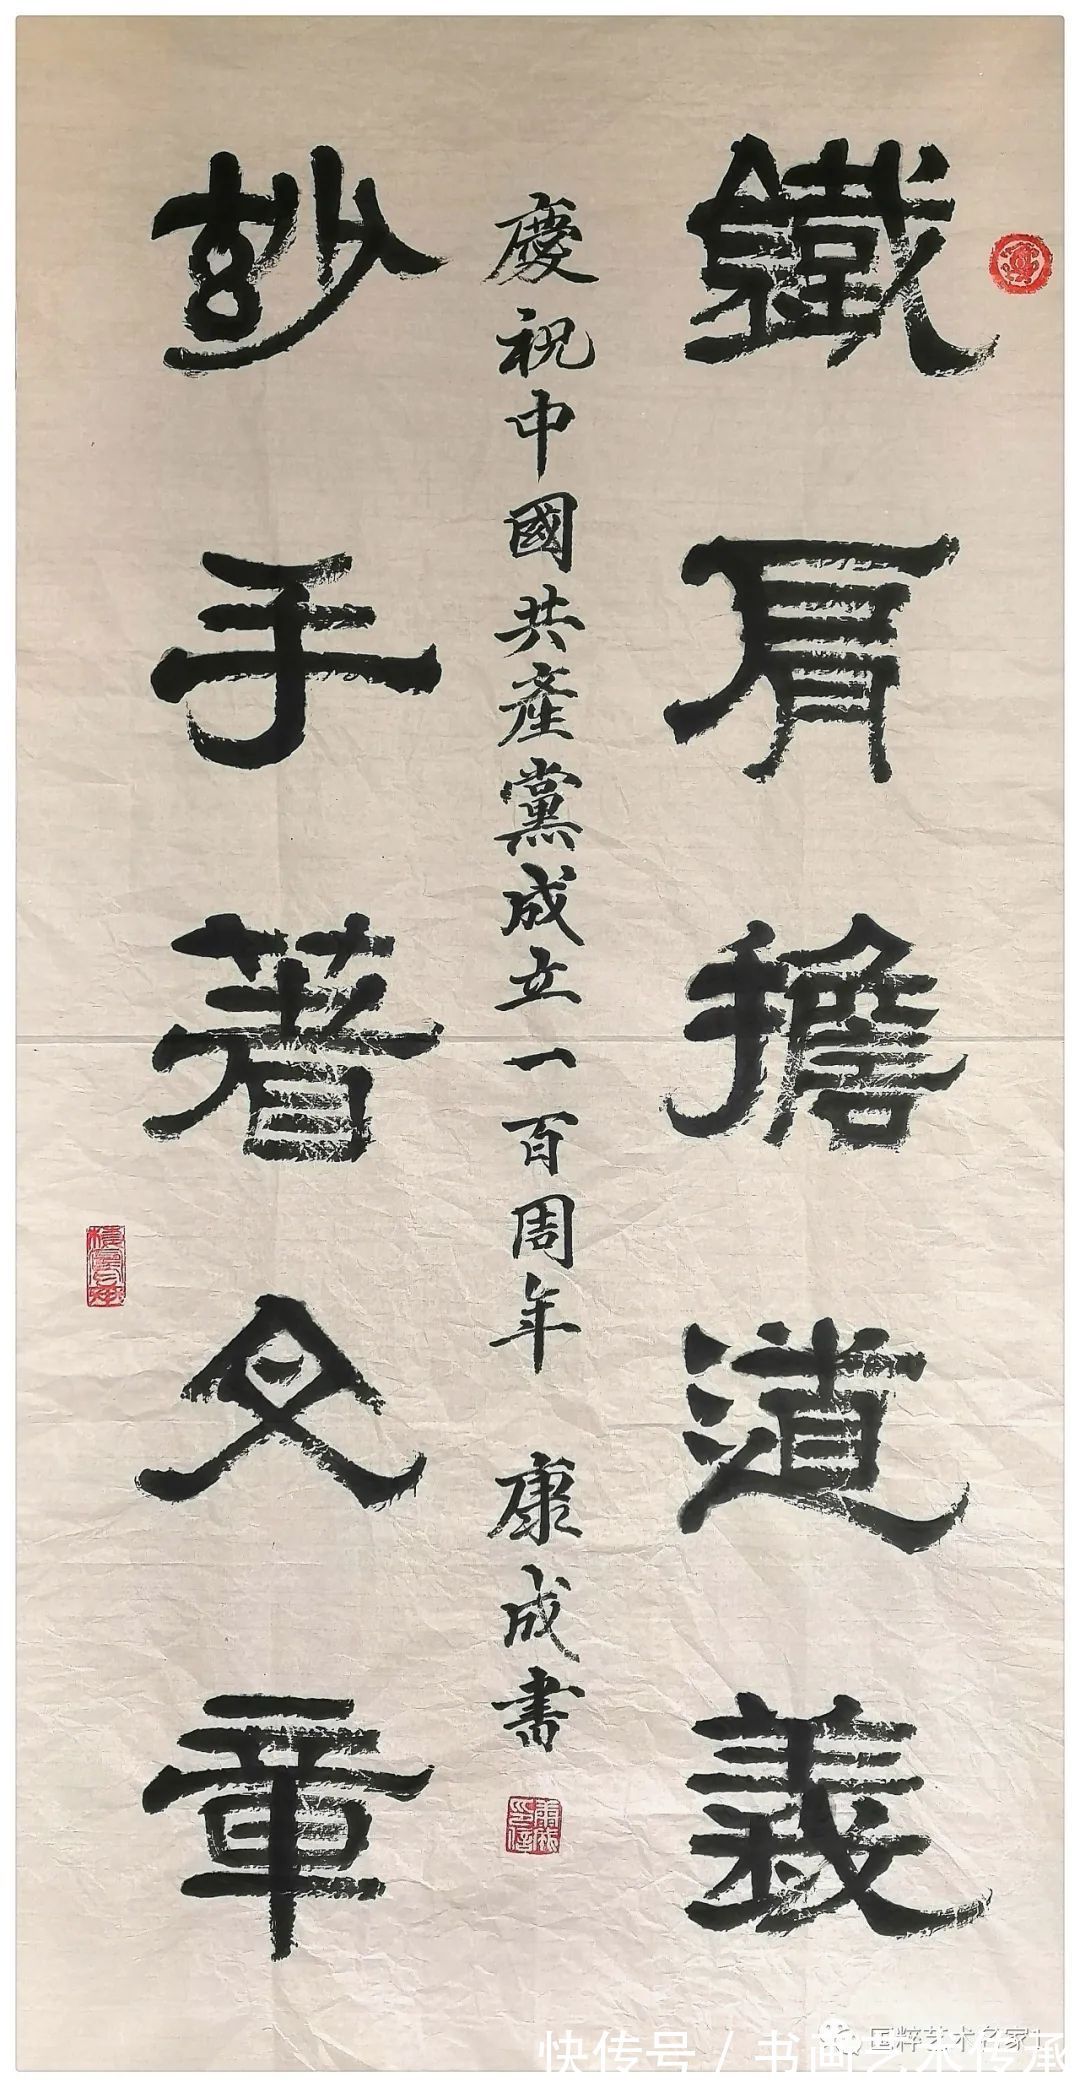 鐵肩擔道義
慶祝中國共產黨成立一百周年 康成書
妙手著文章
康成印信
国粹艺术名家1
快传号 / 书画艺术传承